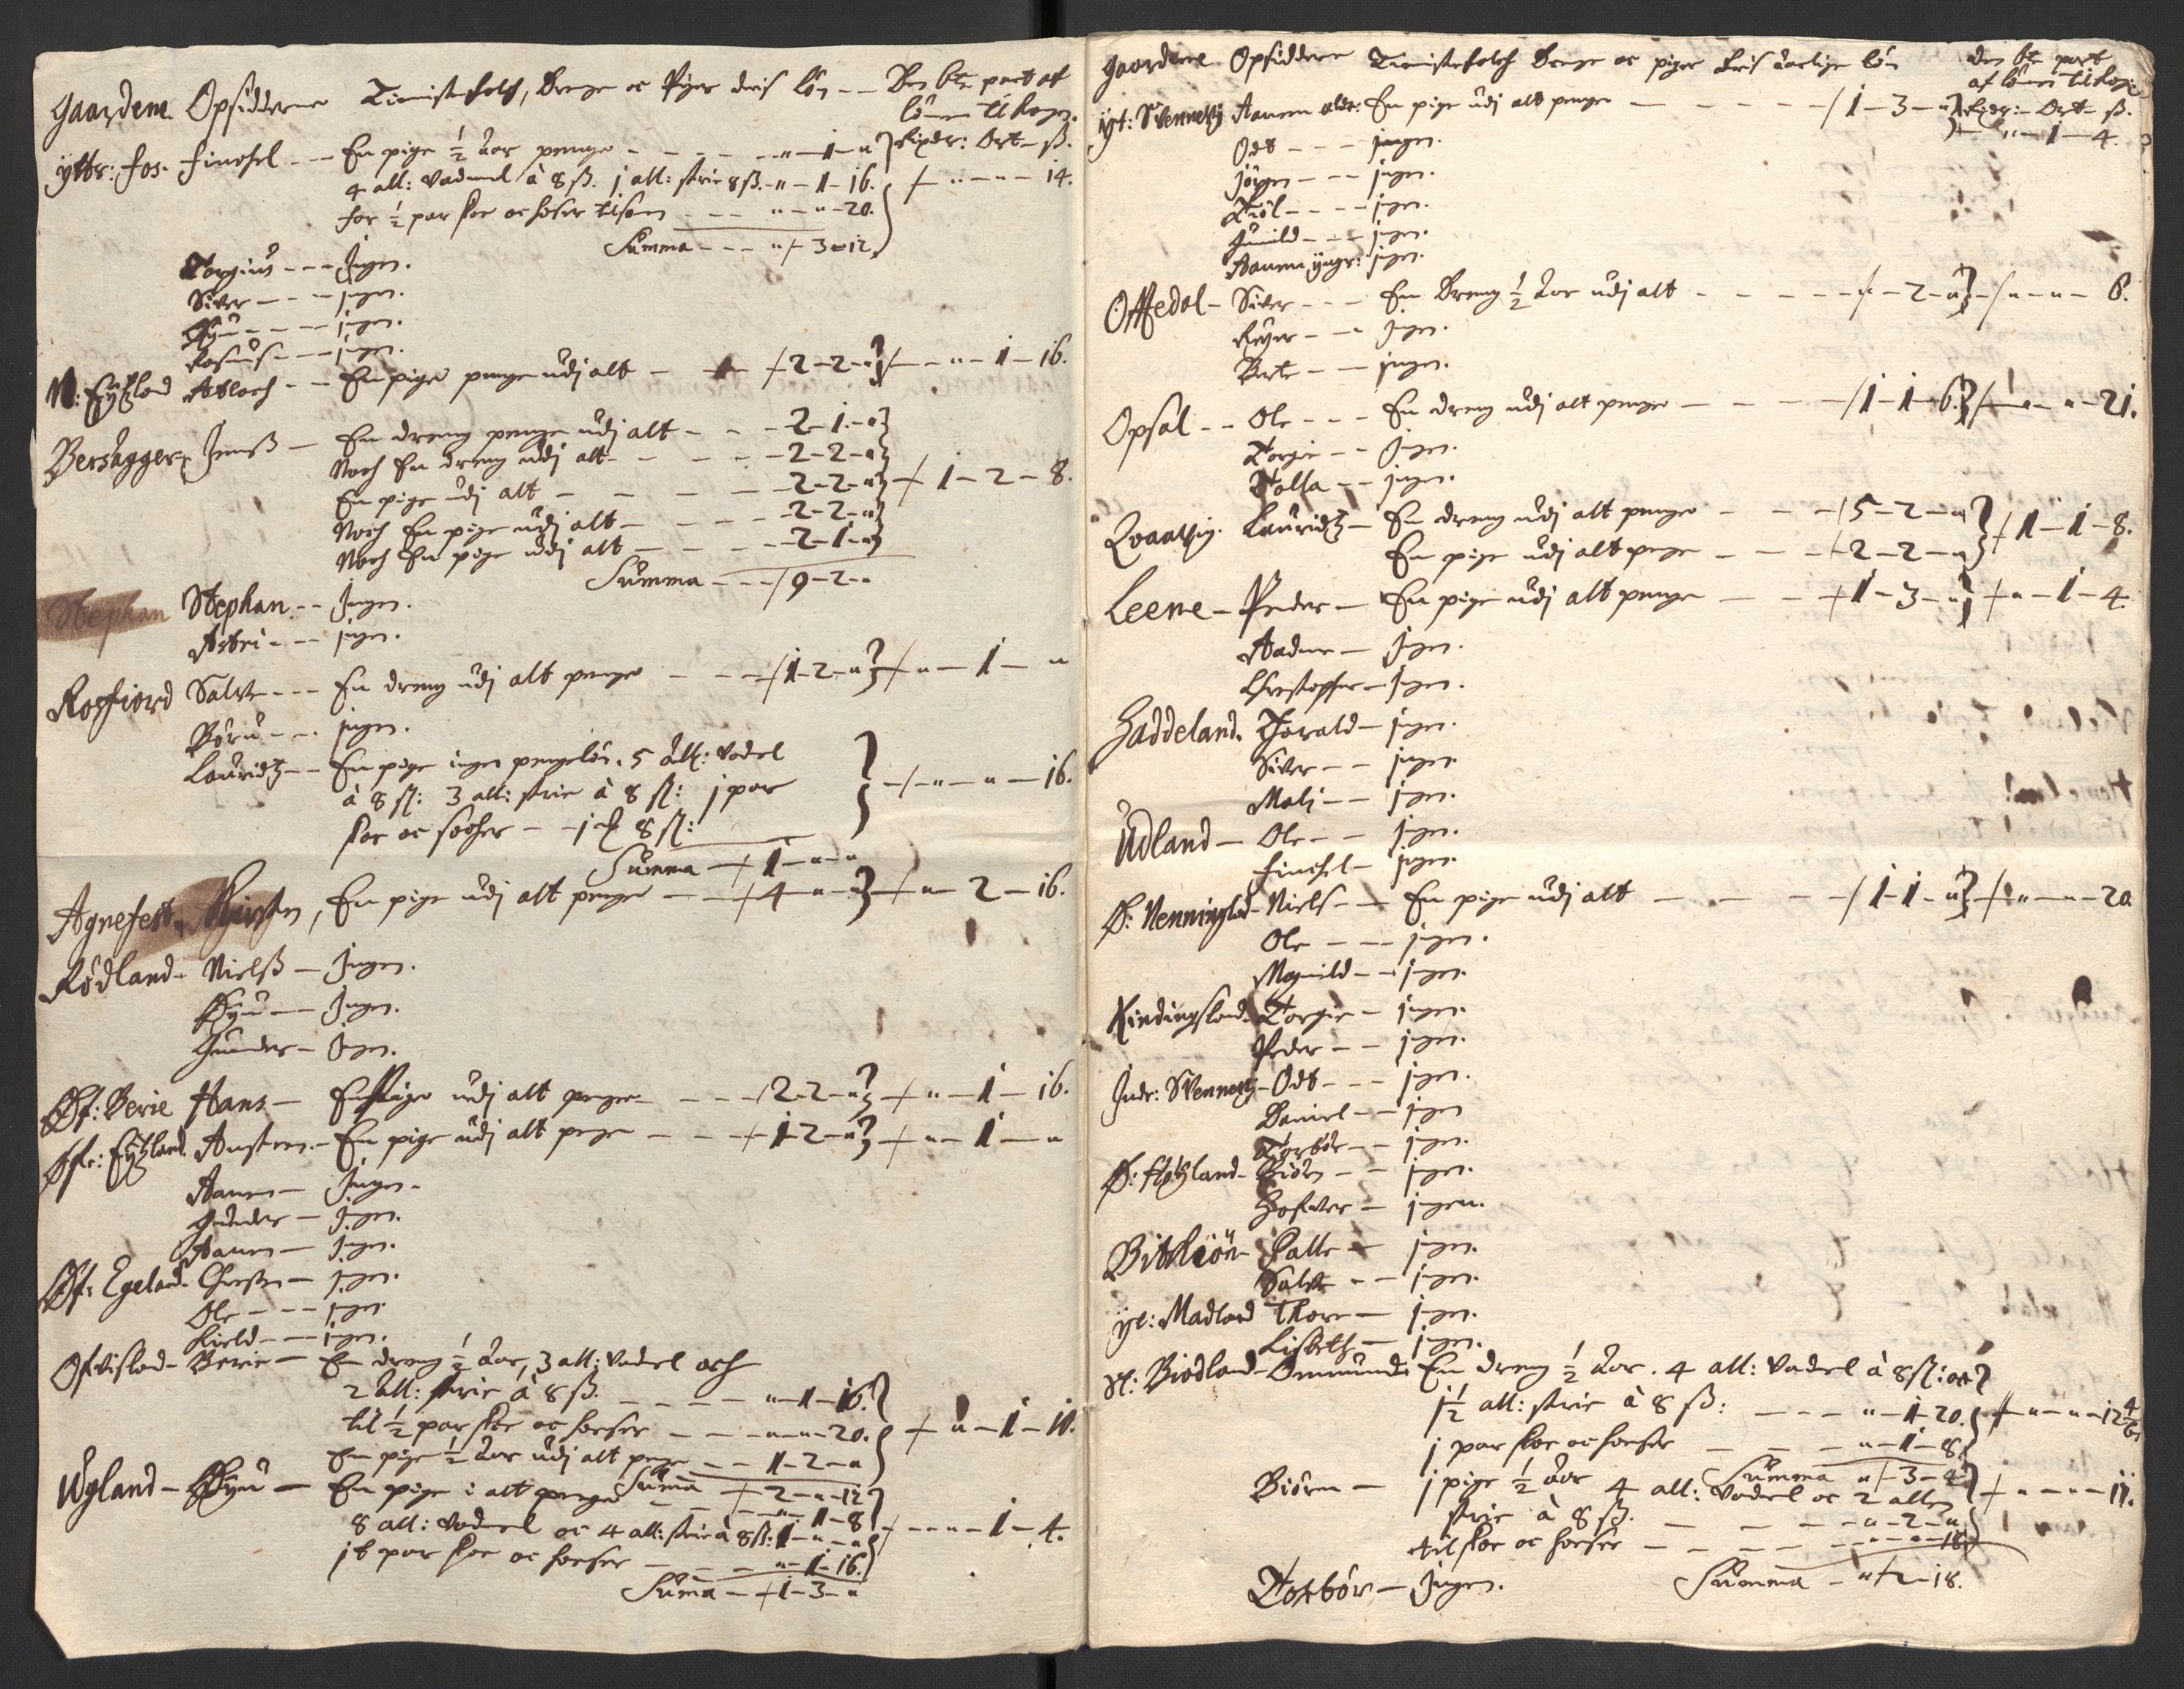 Gaardene Opsidderne Tienistefolch, Drenge oc Piger deris løn -- Den 6te part af
lønnen til kongen.
Ytter: Fos. Finchel --- En pige ½ Aar penge - - - - -- " - 1 - " Rixdr: Ort - ß.
4 all: vadmel à 8 ß. j all: strie 8 ß. - " - 1 - 16. / - " - " - 14.
for ½ par skoe oc hoser tilsam --- " - " - 20.
Summa --- " / 3 - 12.
Torgius --- Ingen.
Siver --- ingen.
Øyu --- ingen.
Rasmus --- ingen.
N: Eytzland Atlach -- En pige penge udj alt - / 2 - 2 - " / -- " - 1 - 16.
Bersagger Jenß - En dreng penge udj alt - - - 2 - 1 - "
Noch En dreng udj alt - - - - 2 - 2 - "
En pige udj alt - - - - 2 - 2 - " / 1 - 2 - 8.
Noch En pige udj alt - - - - 2 - 2 - "
Noch En pige udj alt - - - - 2 - 1 - "
Summa --- / 9 - 2 - "
Stephan Stephan -- Ingen.
Astri --- ingen.
Rosfiord Salve --- En dreng udj alt penge - - - / 1 - 2 - " / " - 1 - "
Børu --- ingen.
Lauridtz -- En pige ingen pengeløn. 5 all: vadel
à 8 ß: 3 all: strie à 8 ß: j par - / - " - " - 16.
skoe oc hoeser - - 8 ß:
Summa - / 1 - " - "
Agnefest, En pige udj alt penge - - / 4 - " - " / " - 2 - 16.
Rödland - Nielß - Ingen.
Øyu - Ingen.
Gunder - Ingen.
Øf: Berie Hans - En Pige udj alt penge - - - / 2 - 2 - " / - " - 1 - 16.
Øfr: Eytzland Austen - En pige udj alt penge - - / 1 - 2 - " / - " - 1 - "
Aanen - Ingen.
Gunder - Ingen.
Aanen - Ingen.
Øf: Egeland Christen - ingen.
Ole --- ingen.
Kield -- ingen.
Ofvisland - Berie - En dreng ½ Aar, 3 all: Vadel och
2 all: strie à 8 ß. - - - - " - 1 - 16.
til ½ par skoe oc hoeser - - - " - " - 20. / " - 1 - 10.
En pige ½ Aar udj alt penge - - 1 - 2 - "
Suma / 2 - " - 12
Wgland - Øyu - En pige i alt penge - - - - " - 1 - 8
8 all: vadmel oc 4 all: strie à 8 ß: 1 - " - " / - - " - 1 - 4.
par skoe oc hoeser - - - " - 1 - 16.
Suma - / 1 - 3 - "
Gaardene Opsiddere Tienistefolch Drenge oc piger deris Aarlige løn Den 6te part
af lønnen til kongen
Yt: Svennevig Aanen eldr: En pige udj alt penge - - - - - / 1 - 3 - " Rixdr: - Ort - ß.
/ - " - 1 - 4.
Odt - - - ingen.
Jørgen - - - ingen.
Kiøl - - - - ingen.
Gunild - - - ingen.
Aanen yngr: ingen.
Offedal - Siver - - - En Dreng ½ Aar udj alt - - - - - / - 2 - " / " - " - 8.
Reyer - - Ingen.
Berte - - ingen.
Opsal - - Ole - - - En dreng udj alt penge - - - - / 1 - 1 - 6 / - " - " - 21.
Torgie - - Ingen.
Tolla - - ingen.
Qvaavig. Lauridtz - En dreng udj alt penge - - - / 5 - 2 - " / 1 - 1 - 8.
En pige udj alt penge - - - / 2 - 2 - "
Leene - Peder - En pige udj alt penge - - / 1 - 3 - " / " - 1 - 4.
Aadne - Ingen.
Christopher - Ingen.
Haddeland. Harald - ingen.
Siver - - ingen.
Mali - - ingen.
Udland - Ole - - ingen.
Finchel - ingen.
Ø: Nenningland - Niels - - En pige udj alt - - - / 1 - 1 - " / " - " - 20
Ole - - - ingen.
Magnild - - ingen.
Kindingsland - Torgie - ingen.
Peder - - ingen.
Indr: Svennevig - Odt - - - ingen.
Daniel - - ingen
Torbør - - ingen.
Ø: Høyland - Biørn - - ingen.
Hofver - ingen.
Bitløn - Salle - ingen.
Salve - - ingen.
Yt: Madland Thore - ingen.
Lisbeth - ingen.
Yt: Biodland - Ommund: En dreng ½ Aar. 4 all: Vadel à 8 ß: oc
j½ all: strie à 8 ß: - - - " - 1 - 20. / - " - " - 12 4/6
j par skoe oc hoeser - - - " - 1 - 8
Summa " / 3 - 4
Biørn - j pige ½ Aar 4 all: vadel oc 2 allen / " - " - 11.
strie à 8 ß. - - - - - " - 2 - "
til skoe oc hoeser - - - - - - " - 18
Torbør - Ingen. Summa - " / 2 - 18.